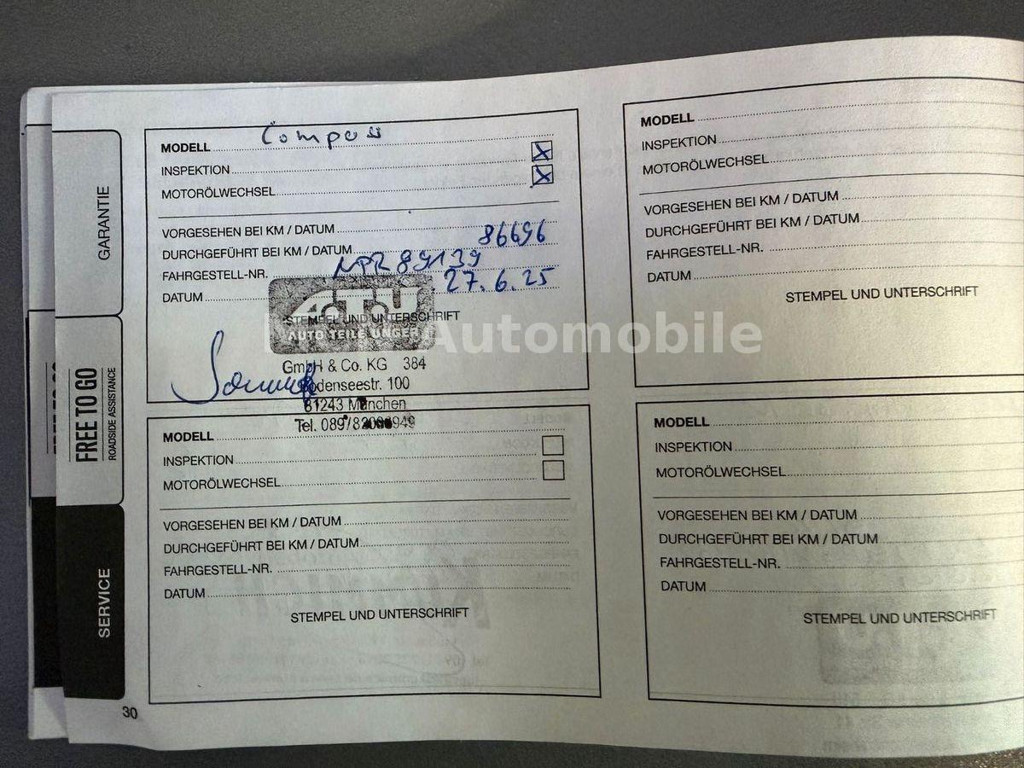 GARANTIE
FREE TO GO
ROADSIDE ASSISTANCE
SERVICE
MODELL Compass
INSPEKTION X
MOTORÖLWECHSEL X
VORGESEHEN BEI KM / DATUM
DURCHGEFÜHRT BEI KM / DATUM 86696
FAHRGESTELL-NR. NPR89139
DATUM 27.6.25
STEMPEL UND UNTERSCHRIFT
A.T.U
AUTO TEILE UNGER
GmbH & Co. KG 384
Bodenseestr. 100
81243 München
Tel. 089/
MODELL
INSPEKTION
MOTORÖLWECHSEL
VORGESEHEN BEI KM / DATUM
DURCHGEFÜHRT BEI KM / DATUM
FAHRGESTELL-NR.
DATUM
STEMPEL UND UNTERSCHRIFT
30
MODELL
INSPEKTION
MOTORÖLWECHSEL
VORGESEHEN BEI KM / DATUM
DURCHGEFÜHRT BEI KM / DATUM
FAHRGESTELL-NR.
DATUM
STEMPEL UND UNTERSCHRIFT
MODELL
INSPEKTION
MOTORÖLWECHSEL
VORGESEHEN BEI KM / DATUM
DURCHGEFÜHRT BEI KM / DATUM
FAHRGESTELL-NR.
DATUM
STEMPEL UND UNTERSCHRIFT
Automobile